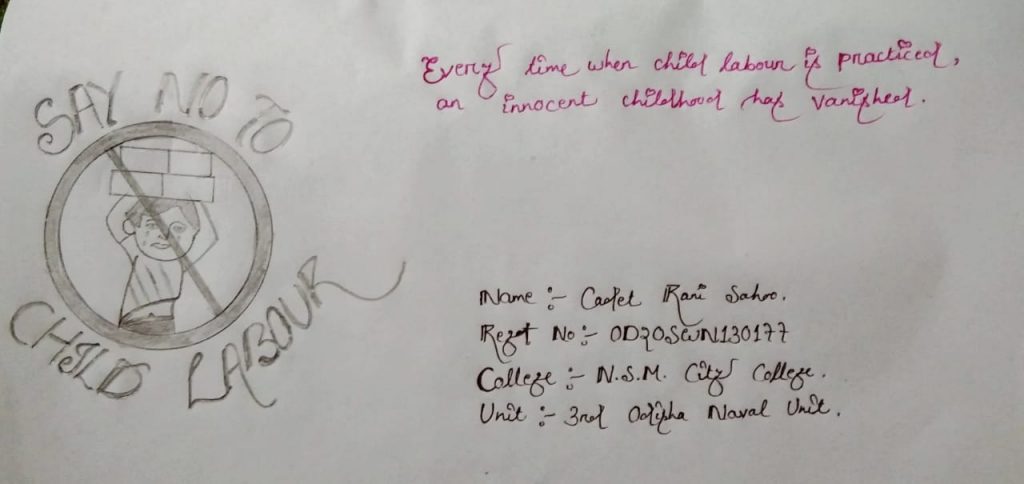 SAY NO TO
CHILD LABOUR
Every time when child labour is practiced,
an innocent childhood has vanished.
Name :- Cadet Rani Sahoo.
Regt No :- OD20SWN130177
College :- N.S.M. City College.
Unit :- 3rd Odisha Naval Unit.